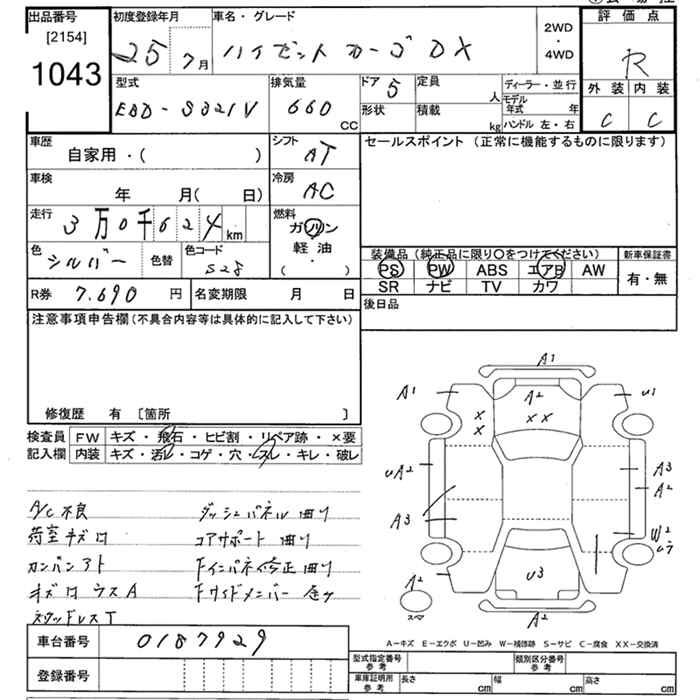 出品番号 [2154] 1043
初度登録年月 25 7月
車名・グレード ハイゼットカーゴ DX
2WD ・ 4WD
評価点 R
外装 内装
C C
型式 EBD-S321V
排気量 660 CC
ドア 5 形状
定員 人 積載 kg
ディーラー・並行
モデル年式 年
ハンドル 左・右
車歴 自家用・( )
シフト AT
セールスポイント (正常に機能するものに限ります)
車検 年 月( 日)
冷房 AC
走行 3万0千624km
燃料 ガソリン 軽油 ・ ( )
色 シルバー 色替 色コード S28
装備品 (純正品に限り〇をつけてください) 新車保証書
PS PW ABS エアB AW 有・無
SR ナビ TV カワ
R券 7.690 円 名変期限 月 日
後日品
注意事項申告欄 (不具合内容等は具体的に記入して下さい)
修復歴 有 [箇所 ]
検査員 FW キズ・飛石・ヒビ割・リペア跡・×要
記入欄 内装 キズ・汚レ・コゲ・穴・スレ・キレ・破レ
A/C不良 ダッシュパネル曲り
荷室キズロ コアサポート曲り
カンバンアト Fインパネ修正曲り
キズロウスA Fサイドメンバー
スタッドレスT
車台番号 0187929
登録番号
A1
A1 A2 U1
× × × ×
UA2 A3
A2
A3 W2
U3
A2 スペア
A2
A-キズ E-エクボ U-凹み W-補修跡 S-サビ C-腐食 XX-交換済
型式指定番号 参考 類別区分番号 参考
車庫証明用 参考 長さ cm 幅 cm 高さ cm